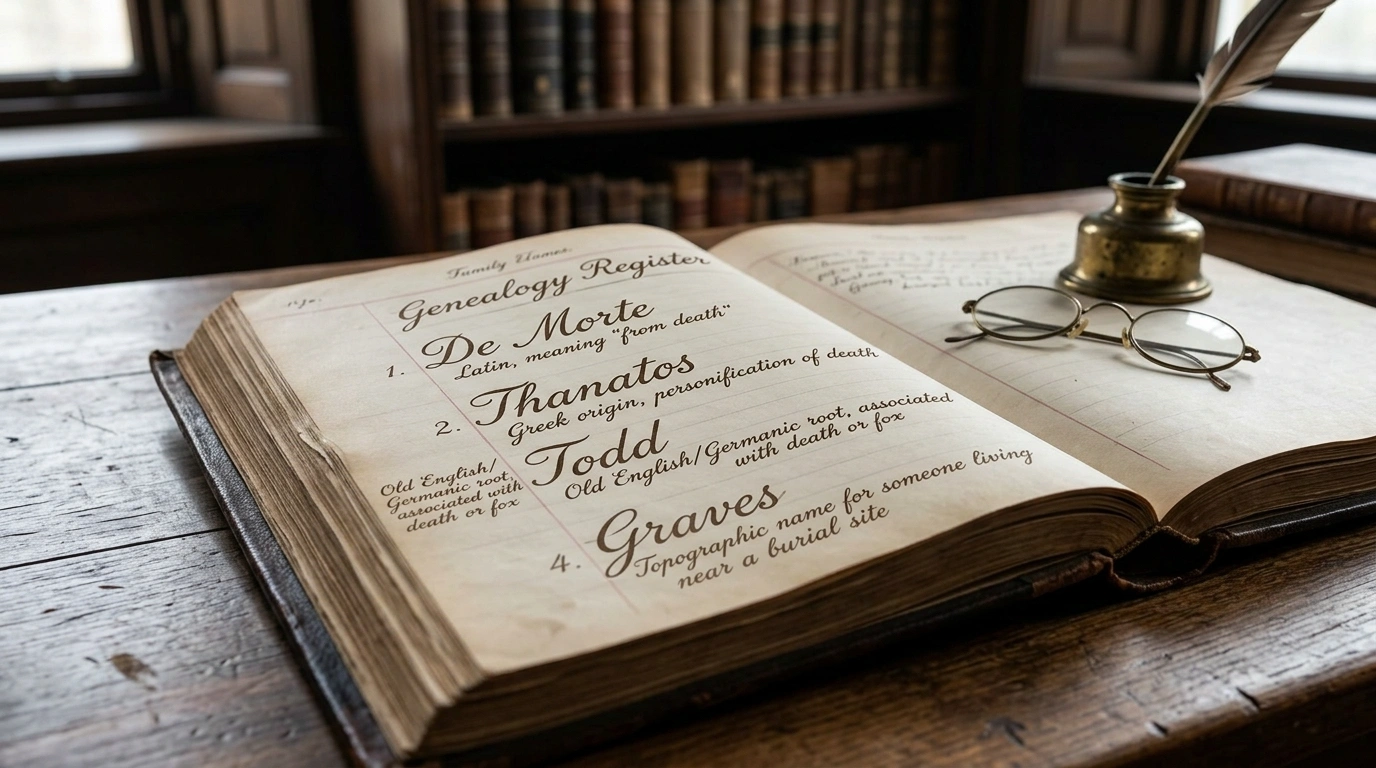 Genealogy Register
1. De Morte
Latin, meaning "from death"
2. Thanatos
Greek origin, personification of death
Todd
Old English/Germanic root, associated
with death or fox
Old English/
Germanic root,
associated with
death or fox
4. Graves
Topographic name for someone living
near a burial site